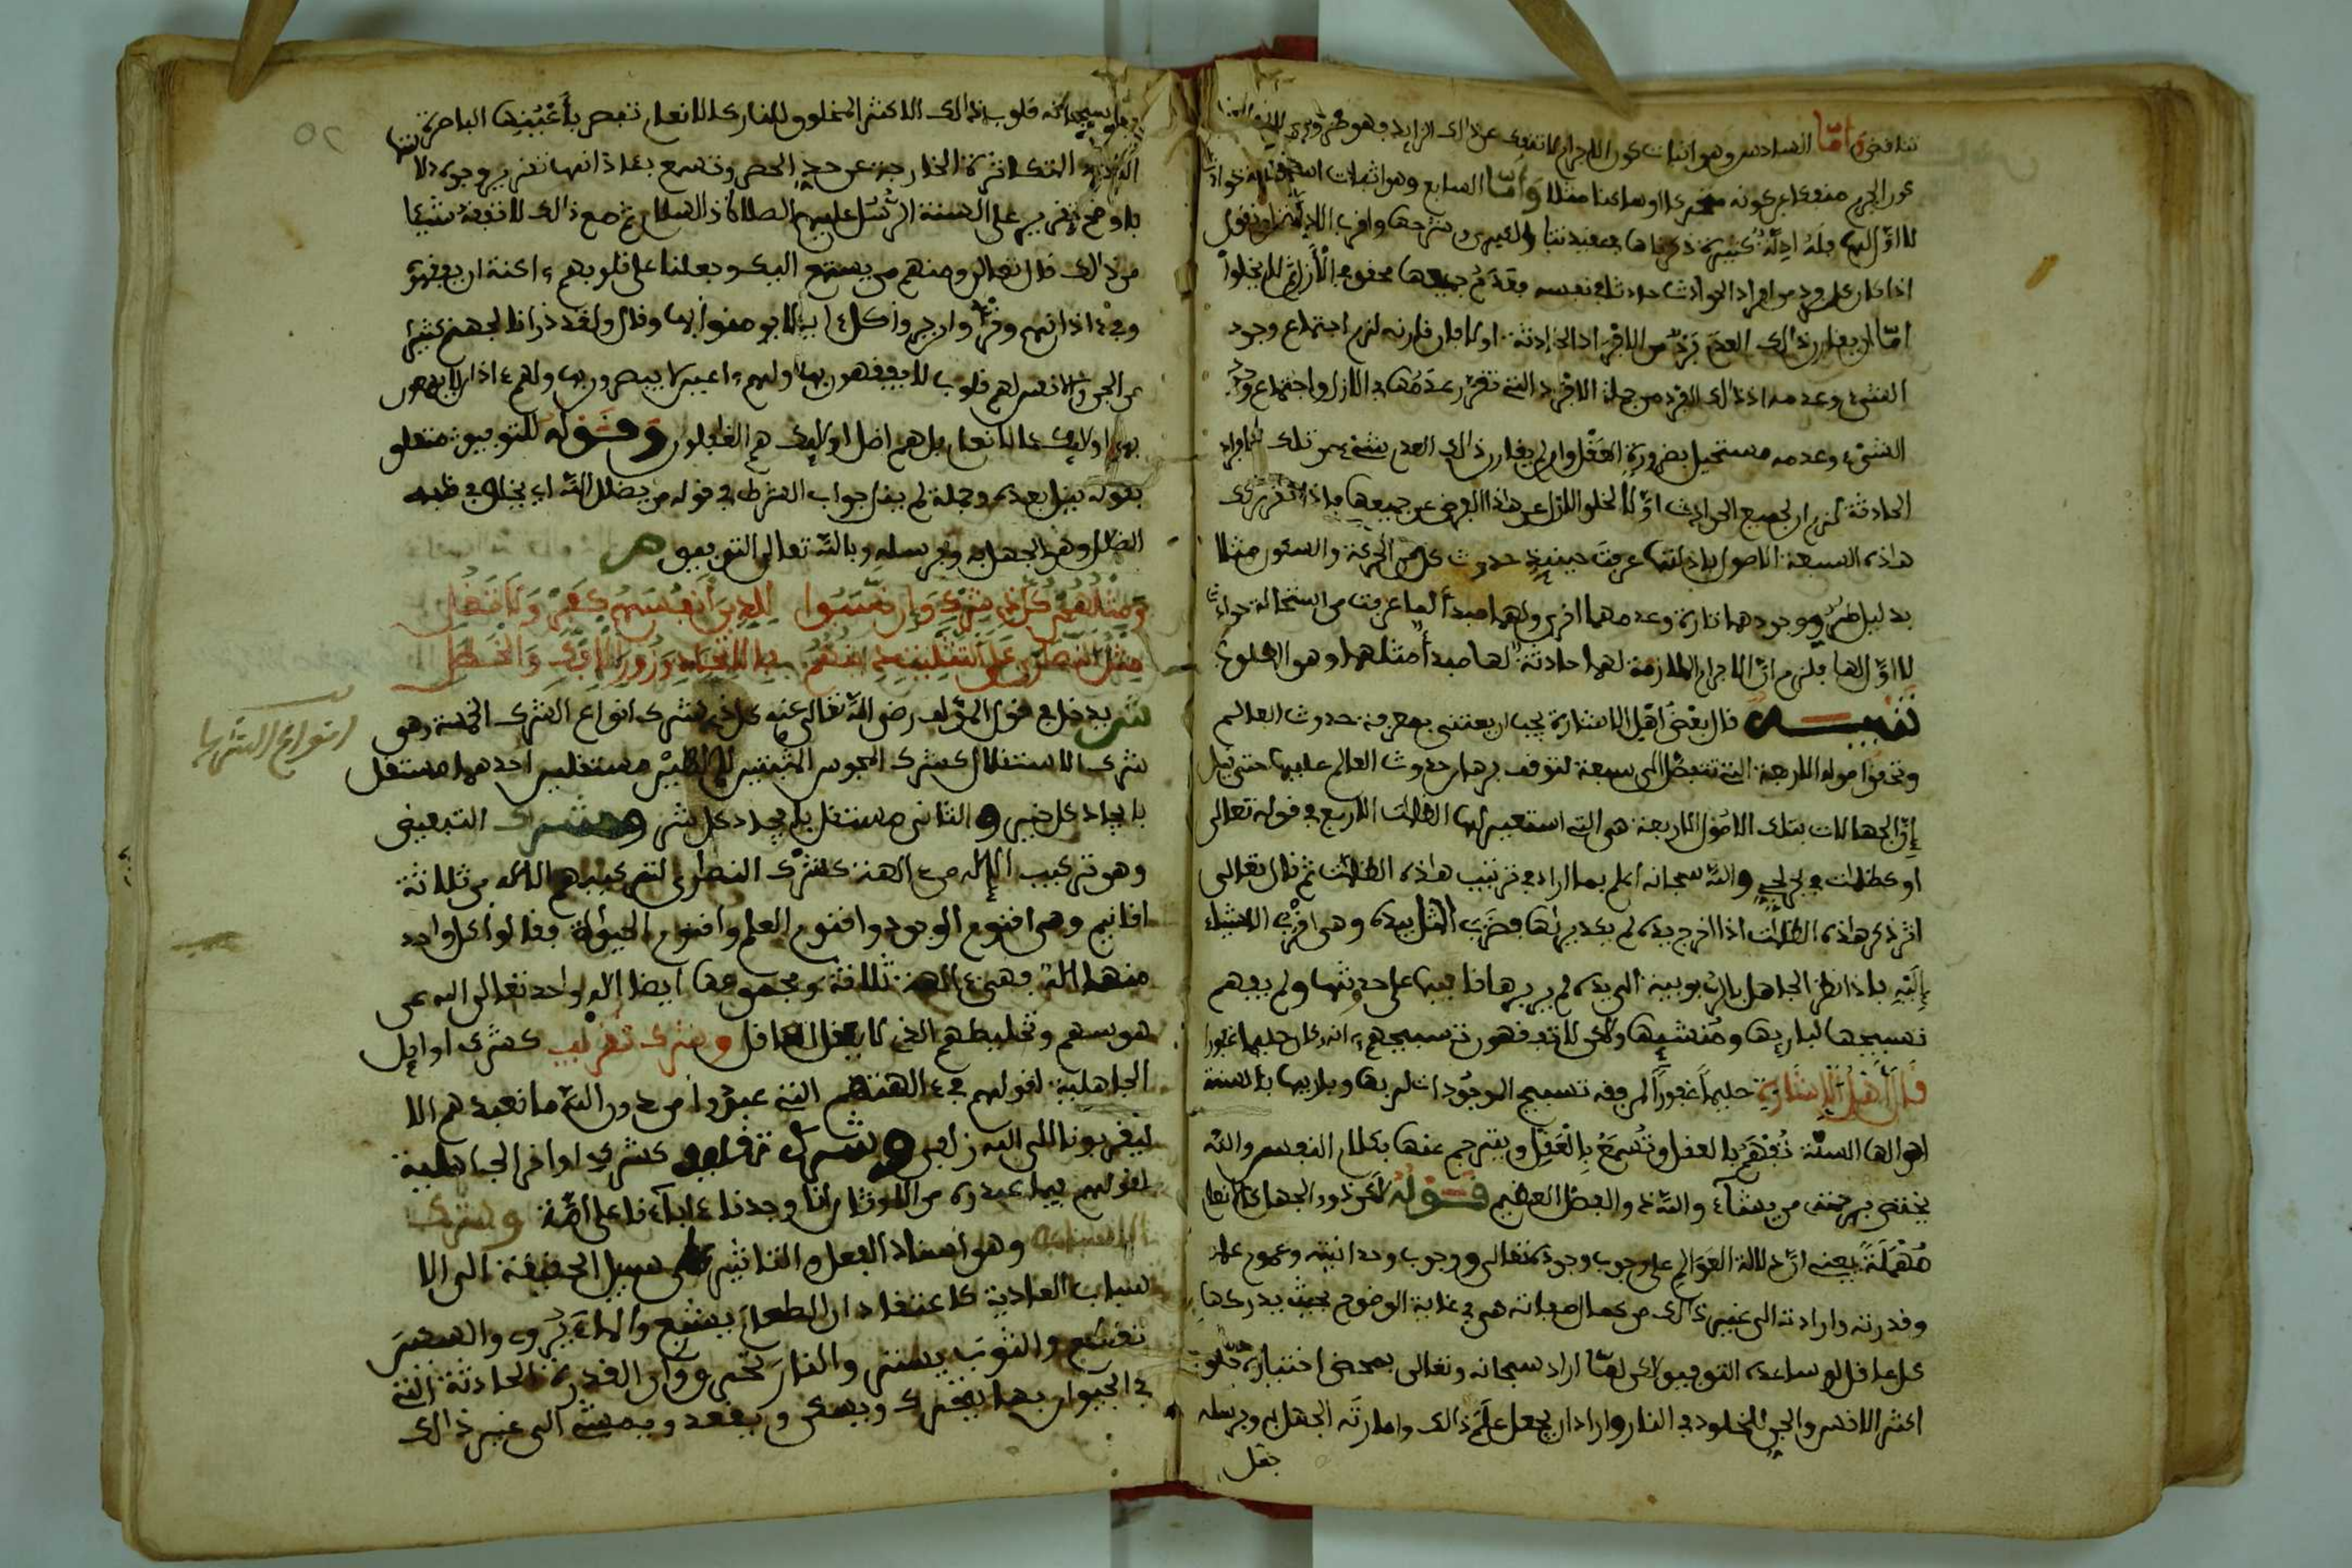 تناقض وأما السادس وهو اثبات كون الاجرام لا تنفك عن ذلك الزايد فهو ضروري
كون الجرم منفكا عن كونه متحركا أو ساكنا مثلا وأما السابع وهو اثبات استحالة حوادث
لا اول لها فله ادلة كثيرة ذكرناها في عقيدتنا الكبرى وشرحها واقرب الادلة ان نقول
اذا كان كل فرد من افراد الحوادث حادثا في نفسه فعدم جميعها محقق في الأزل ثم لا يخلوا
اما ان يقارن ذلك العدم فرد من الافراد الحادثة اولا فان قارنه لزم اجتماع وجود
الشيء وعدمه اذ ذلك الفرد من جملة الافراد التي تقرر عدمها في الازل واجتماع وجود
الشيء وعدمه مستحيل بضرورة العقل وان لم يقارن ذلك العدم شيء من تلك الافراد
الحادثة لزم ان لجميع الحوادث اولا لخلو الازل على هذا الفرض عن جميعها فاذا تقررت
هذه السبعة الاصول بادلتها عرفت حينيذ حدوث كل من الحركة والسكون مثلا
بدليل طرو وجودهما تارة وعدمهما اخرى ولهما مبدأ لما عرفت من استحالة حوادث
لا اول لها فلزم ان الاجرام الملازمة لهما حادثة لها مبدأ مثلهما وهو المطلوب
تنبيه قال بعض أهل الاشارة يجب ان يعتنى بمعرفة حدوث العالم
وتحقق اصوله الاربعة التي تتبعض الى سبعة لتوقف برهان حدوث العالم عليها حتى قيل
إن الجهالات بتلك الاصول الاربعة هي التي استعير لها الظلمات الاربع في قوله تعالى
او كظلمات في بحر لجي والله سبحانه اعلم بما اراد في ترتيب هذه الظلمات ثم قال تعالى
اثر ذكر هذه الظلمات اذا اخرج يده لم يكد يراها فضرب المثل بيده وهي اقرب الاشياء
إليه فاذا نظر الجاهل بالربوبية الى يده لم ير برهانا فيها على حدوثها ولم يفهم
تسبيحها لباريها ومنشيها ولكن لا تفقهون تسبيحهم انه كان حليما غفورا
قال أهل الإشارة حليما غفورا لمن فقه تسبيح الموجودات لربها وباريها بالسنة
احوالها السنة تفهم بالعقل وتسمع بالعقل ويترجم عنها بكلام النفس والله
يختص برحمته من يشآء والله ذو الفضل العظيم قوله لكن ذوو الجهل كالانعام
مهملة يعني ان دلالة العوالم على وجوب وجوده تعالى ووجوب وحدانيته وعموم علمه
وقدرته وارادته الى غير ذلك من كمال صفاته هي في غاية الوضوح بحيث يدركها
كل عاقل لو ساعده التوفيق لكن لما اراد سبحانه وتعالى بمحض اختياره خلق
اكثر الانس والجن للخلود في النار واراد ان يجعل علم ذلك وامارته الجهل به وبرسله
جعل
سبحانه قلوب ذلك الاكثر المخلوق للنار كالانعام تبصر بأعينها الباصرة
المتكاثرة الخارجة عن حد الحصر وتسمع بئاذانها تقرير وجوه
باوضح تقرير على السنة الرسل عليهم الصلاة والسلام ثم مع ذلك لا تفقه شيئا
من ذلك قال تعالى ومنهم من يستمع اليك وجعلنا على قلوبهم اكنة ان يفقهوه
وفي ءاذانهم وقرا وان يروا كل ءاية لا يومنوا بها وقال ولقد ذرانا لجهنم كثيرا
من الجن والانس لهم قلوب لا يفقهون بها ولهم اعين لا يبصرون بها ولهم ءاذان لا يسمعون
بها اولايك كالانعام بل هم اضل اولايك هم الغافلون وقوله للتوفيق متعلق
بقوله ينل بعده وجملة لم ينل جواب الشرط في قوله من يضلل الله اي يخلق في قلبه
الضلال وهو الجهل به وبرسله وبالله تعالى التوفيق ص
ومثلهم كل ذي شرك وان نسبوا للدين أنفسهم كفر ولا تضل
مثل النصارى على التثليث
ش يدخل في قول المؤلف رضي الله تعالى عنه كل ذي شرك انواع الشرك الخمسة وهو
شرك الاستقلال كشرك المجوس المثبتين إلاهين مستقلين احدهما مستقل
بايجاد كل خير والثاني مستقل بايجاد كل شر وشرك التبعيض
وهو تركيب الإله من ءالهة كشرك النصارى لتركيبهم الاله من ثلاثة
اقانيم وهي اقنوم الوجود واقنوم العلم واقنوم الحيوة فقالوا كل واحد
منها اله فهي ءالهة ثلاثة ومجموعها ايضا اله واحد تعالى الله عن
هوسهم وتخليطهم الذي لا يعقل عاقل وشرك تقريب كشرك اوايل
الجاهلية لقولهم في ءالهتهم التي عبدوا من دون الله ما نعبدهم الا
ليقربونا الى الله زلفى وشرك تقليد كشرك اواخر الجاهلية
لقولهم فيما عبدوه من الاوثان إنا وجدنا ءابآءنا على أمة وشرك
الاسباب وهو اسناد الفعل والتاثير على سبيل الحقيقة الى الا
سباب العادية كاعتقاد ان الطعام يشبع والمآء يروي والسكين
تقطع والثوب يستر والنار تحرق وان القدرة الحادثة التي
في الحيوان بها يتحرك ويسكن ويقعد ويمشي الى غير ذلك
انواع الشرك